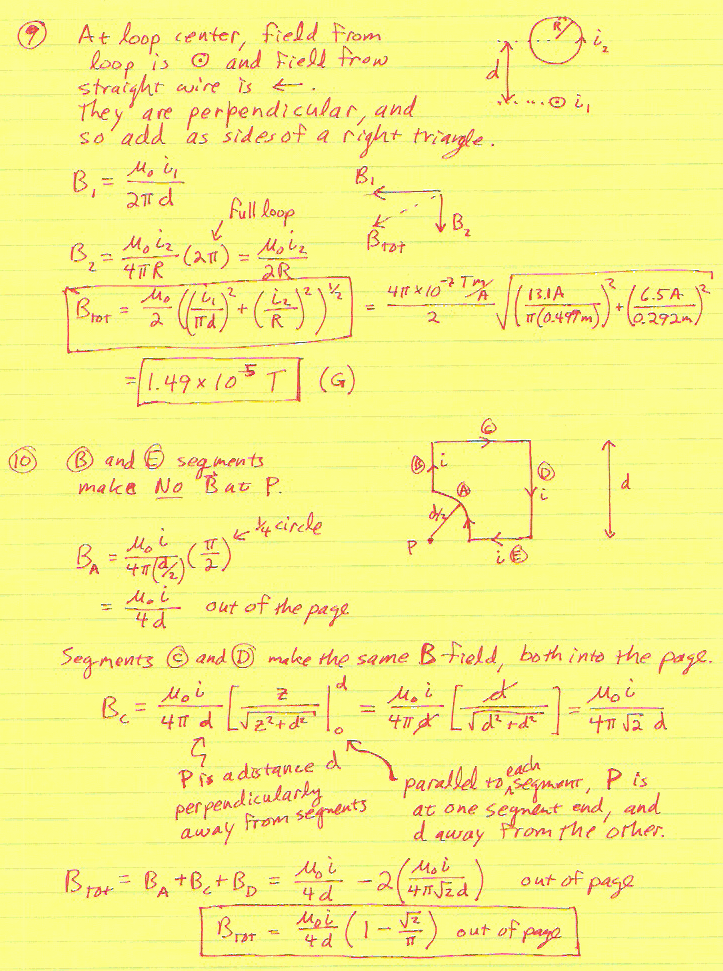 9 At loop center, field from
loop is ⊙ and field from
straight wire is ←.
They are perpendicular, and
so add as sides of a right triangle.
R i₂
d
⊙ i₁
B₁ = μ₀ i₁ / 2πd
B₁
B₂
B_TOT
full loop
B₂ = μ₀ i₂ / 4πR (2π) = μ₀ i₂ / 2R
B_tot = μ₀/2 ((i₁/πd)² + (i₂/R)²)^½ = 4π×10⁻⁷ Tm/A / 2 √((13.1A / π(0.497m))² + (6.5A / 0.292m)²)
= 1.49 × 10⁻⁵ T (G)
10 Ⓑ and Ⓔ segments
make No B⃗ at P.
Ⓒ
Ⓑ i
Ⓓ
i
Ⓐ
d/2
P
i Ⓔ
d
¼ circle
B_A = μ₀ i / 4π(d/2) (π/2)
= μ₀ i / 4d out of the page
Segments Ⓒ and Ⓓ make the same B field, both into the page.
B_C = μ₀ i / 4π d [z / √(z²+d²)|₀ᵈ = μ₀ i / 4π d [d / √(d²+d²)] = μ₀ i / 4π √2 d
P is a distance d
perpendicularly
away from segments
parallel to each segment, P is
at one segment end, and
d away from the other.
B_TOT = B_A + B_C + B_D = μ₀ i / 4d − 2 (μ₀ i / 4π√2 d) out of page
B_TOT = μ₀ i / 4d (1 − √2/π) out of page